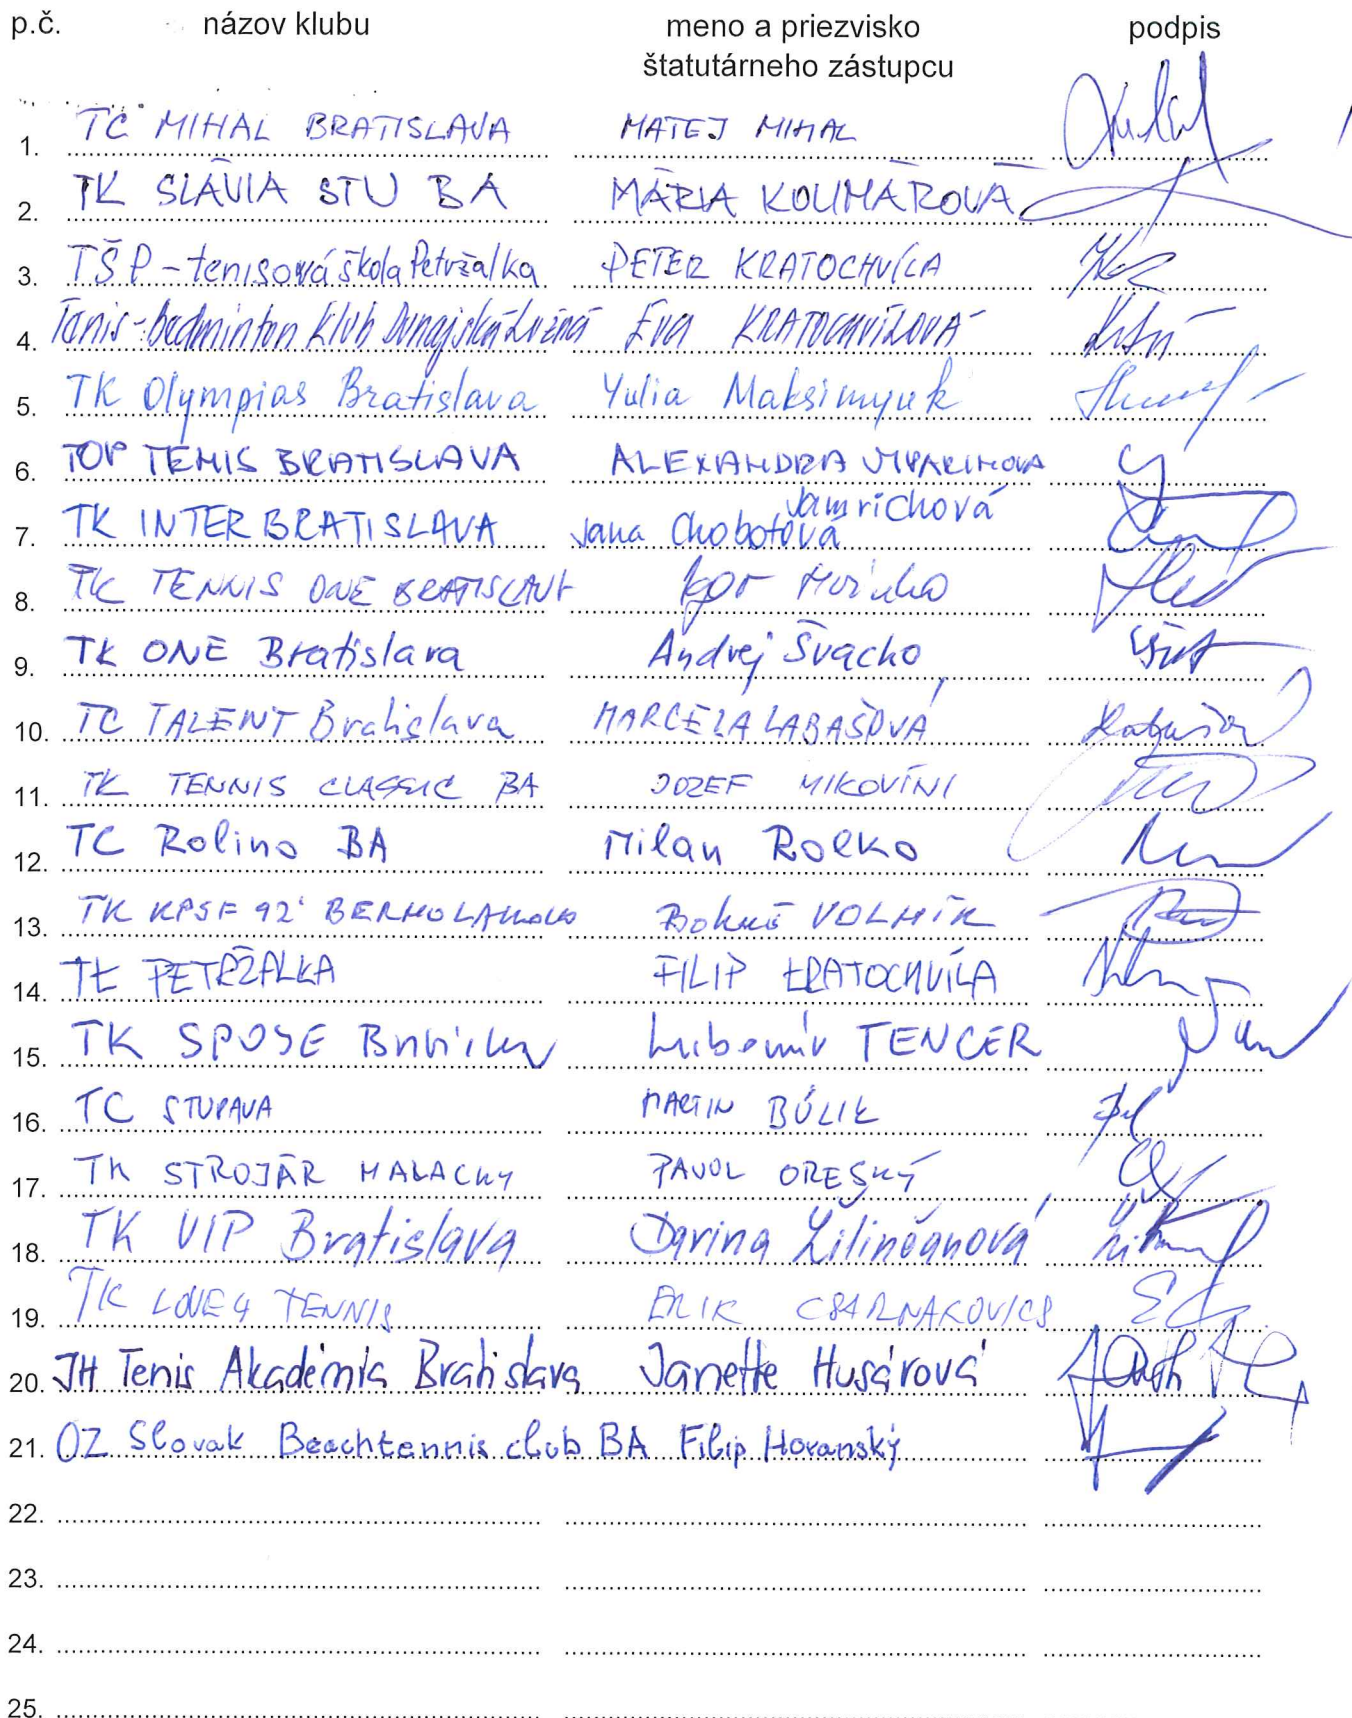 p.č. názov klubu meno a priezvisko podpis
štatutárneho zástupcu
1. TC MIHAL BRATISLAVA MATEJ MIHAL
2. TK SLÁVIA STU BA MÁRIA KOLIMÁROVÁ
3. TŠP - tenisová škola Petržalka PETER KRATOCHVÍLA
4. Tenis-bedminton klub Dunajská Lužná Eva KRATOCHVÍLOVÁ
5. TK Olympias Bratislava Yulia Maksimyuk
6. TOP TENIS BRATISLAVA ALEXANDRA
Jamrichová
7. TK INTER BRATISLAVA Jana Chobotová
8. TC TENNIS ONE BRATISLAVA Igor
9. TK ONE Bratislava Andrej Švacho
10. TC TALENT Bratislava MARCELA LABAŠOVÁ
11. TK TENNIS CLASSIC BA JOZEF MIKOVÍNI
12. TC Rolino BA Milan Rolko
13. TK KPSF 92' BERNOLÁKOVO Bohuš VOLNÍK
14. TK PETRŽALKA FILIP KRATOCHVÍLA
15. TK SPOJE Ľubomír TENCER
16. TC STUPAVA MARTIN BÚLIK
17. TK STROJÁR MALACKY PAVOL ORESKÝ
18. TK VIP Bratislava Darina Žilinčanová
19. TK LOVE 4 TENNIS ERIK CSARNAKOVICS
20. JH Tenis Akadémia Bratislava Janette Husárová
21. OZ Slovak Beachtennis club BA Filip Horanský
22.
23.
24.
25.